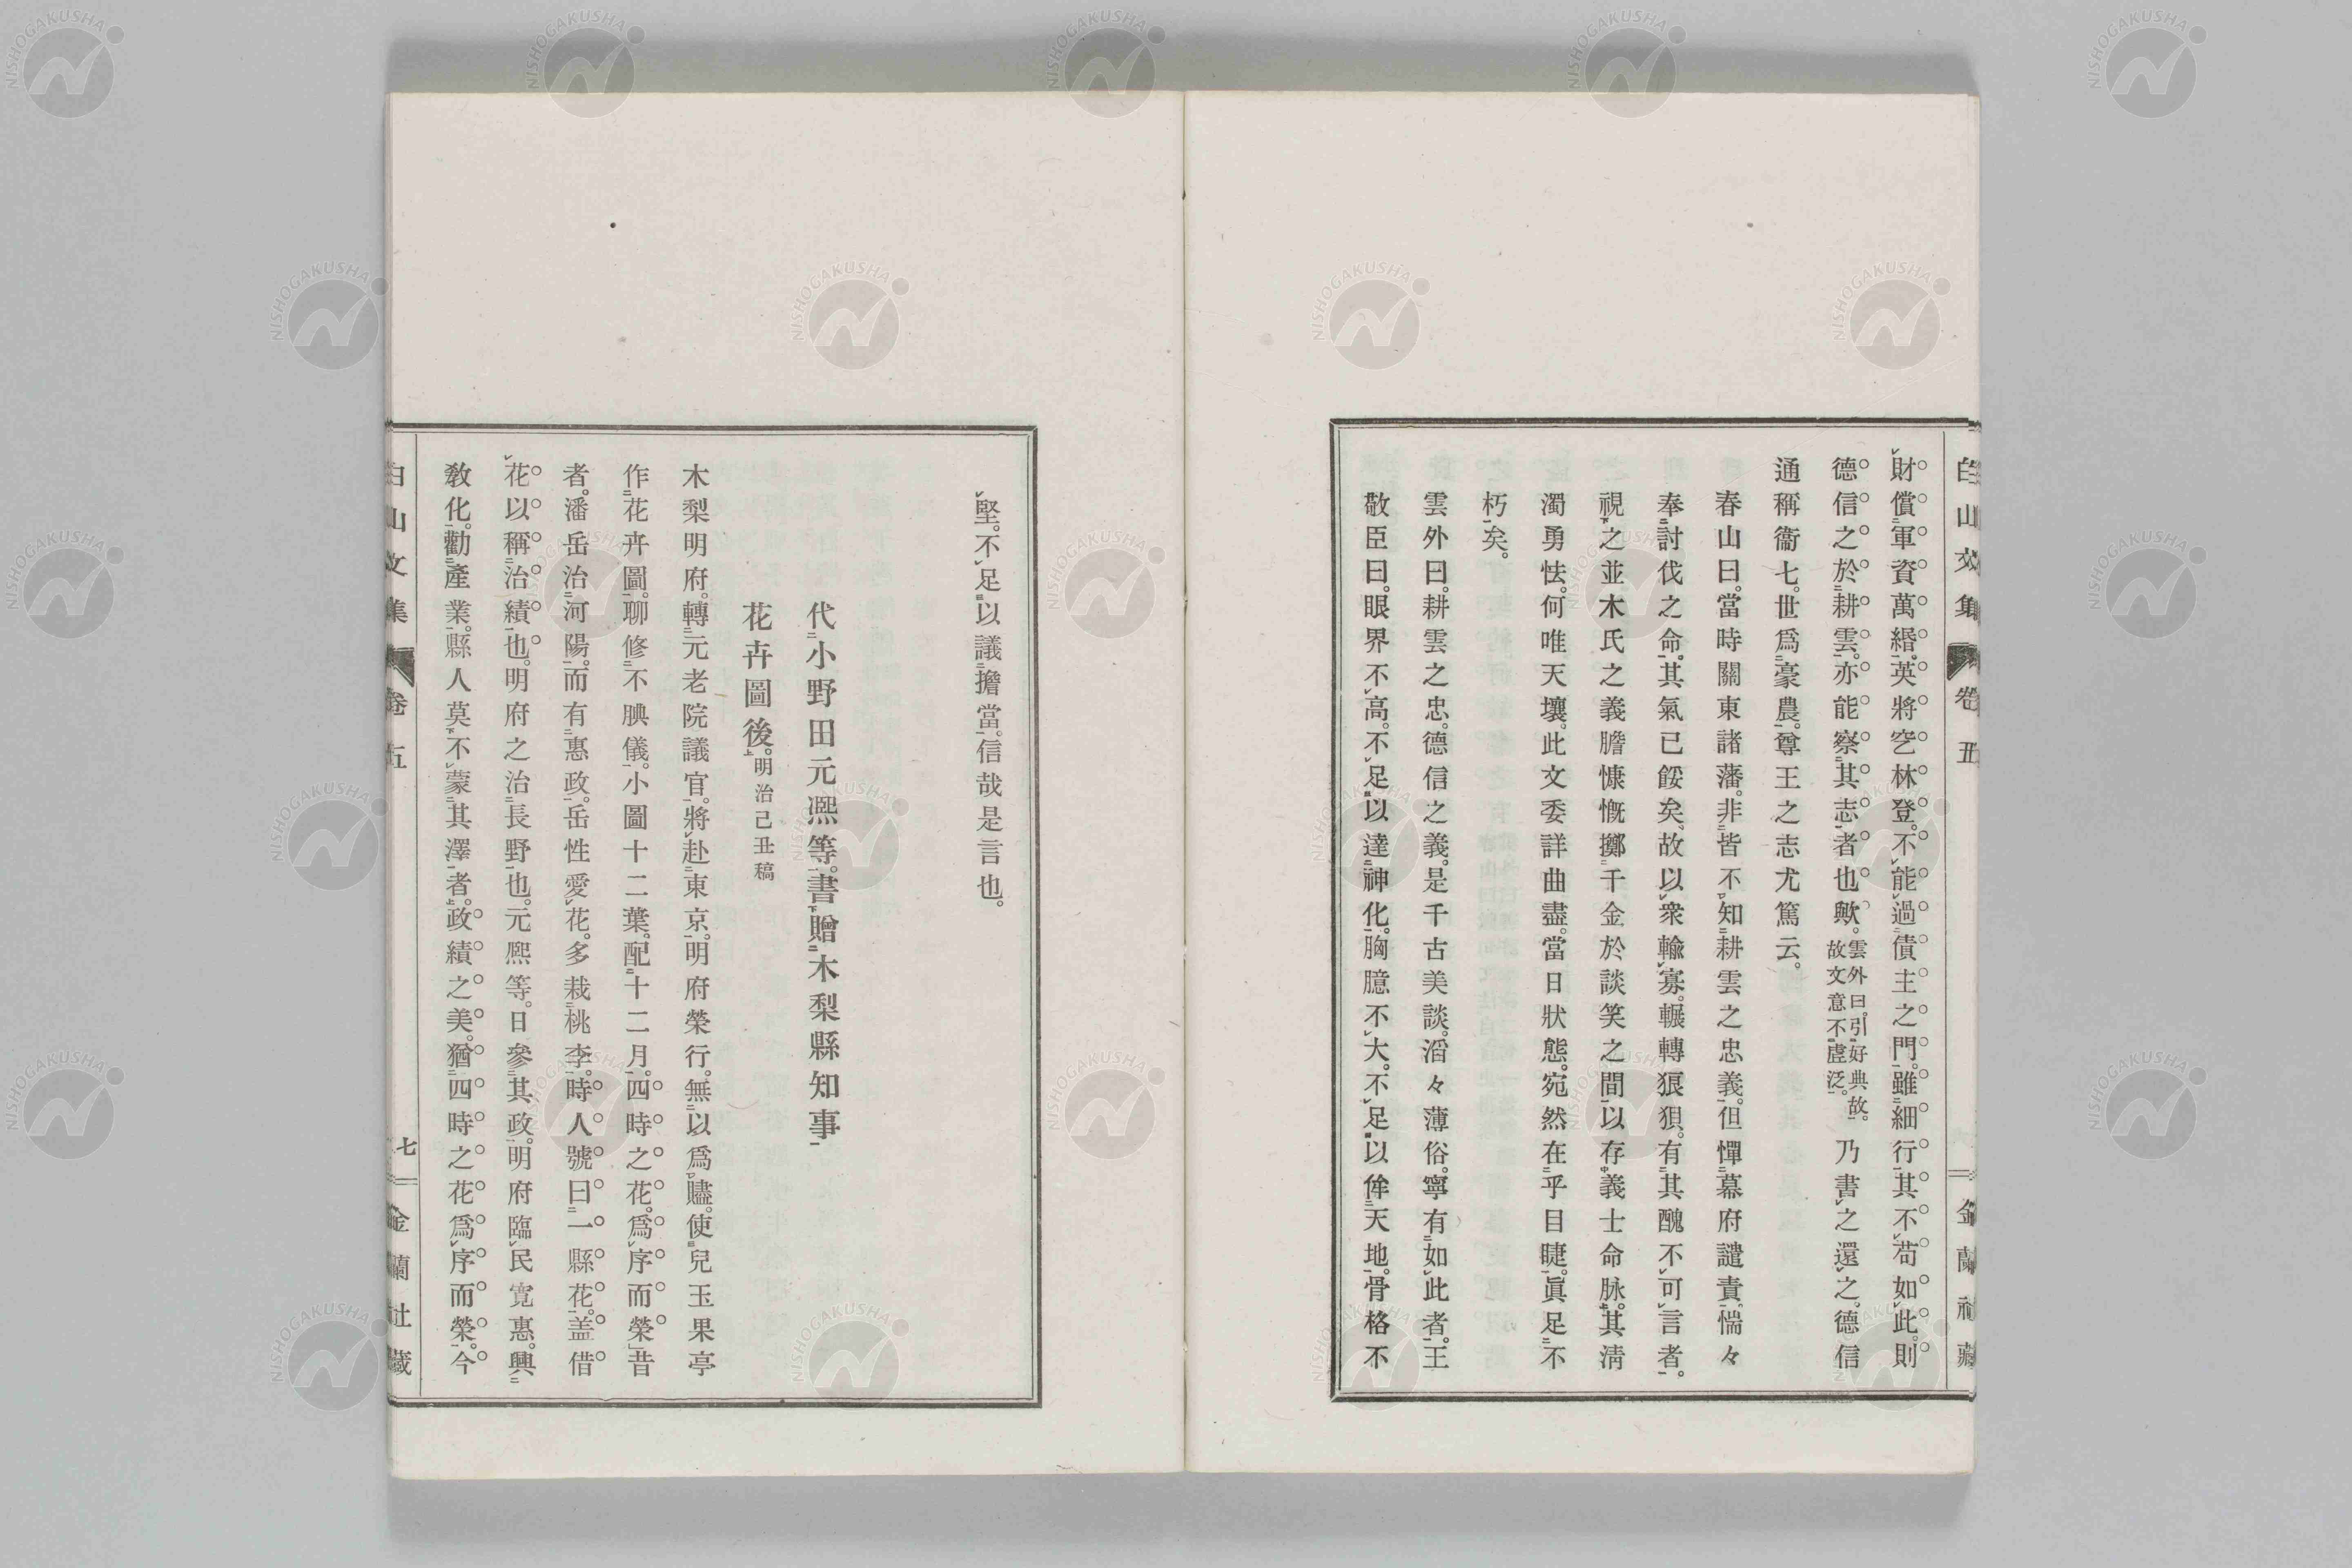 財償軍資萬緡。英將空林登。不能過債主之門。雖細行其不苟如此。則
德信之於耕雲。亦能察其志者也歟。雲外曰。引好典故。故文意不虛泛。乃書之還之。德信
通稱衞七。世爲豪農。尊王之志尤篤云。
春山曰。當時關東諸藩。非皆不知耕雲之忠義。但憚幕府譴責。惴々
奉討伐之命。其氣已餒矣。故以衆輸寡。輾轉狠狽。有其醜不可言者。
視之並木氏之義膽慷慨擲千金於談笑之間。以存義士命脉。其淸
濁勇怯。何唯天壤。此文委詳曲盡。當日狀態。宛然在乎目睫。眞足不
朽矣。
雲外曰。耕雲之忠。德信之義。是千古美談。滔々薄俗。寧有如此者。王
敬臣曰。眼界不高。不足以達神化。胸臆不大。不足以侔天地。骨格不
白山文集 卷五
金蘭社藏
堅。不足以議擔當。信哉是言也。
代小野田元凞等。書贈木梨縣知事
花卉圖後。明治己丑稿
木梨明府。轉元老院議官。將赴東京。明府榮行。無以爲贐。使兒玉果亭
作花卉圖。聊修不腆儀。小圖十二葉。配十二月。四時之花。爲序而榮」昔
者。潘岳治河陽。而有惠政。岳性愛花。多栽桃李。時人號曰一縣花。盖借
花以稱治績也。明府之治長野也。元凞等。日參其政。明府臨民寬惠。興
敎化。勸產業。縣人莫不蒙其澤者。政績之美。猶四時之花爲序而榮。今
白山文集 卷五
七
金蘭社藏
NISHOGAKUSHA